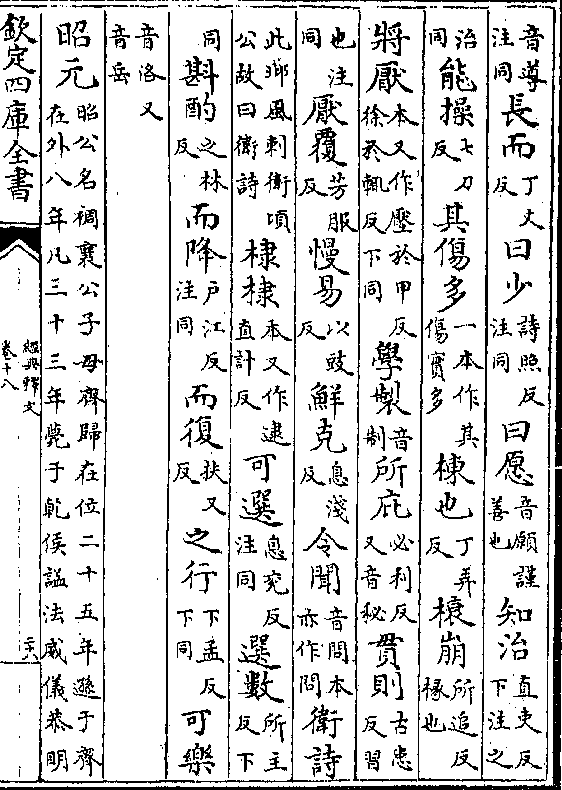 音導注同長而丁丈反曰少詩照反注同曰愿音願謹善也知治直吏反下注之
治同能操七刀反其傷多一本作其傷實多棟也丁弄反榱崩所追反椽也
將厭本又作壓於甲反徐於輒反下同學製音制所庇必利反又音秘貫則古患反習
也注同厭覆芳服反慢易以豉反鮮克息淺反令聞音問本亦作問衛詩
此鄘風刺衛頃公故曰衛詩棣棣本又作逮直計反可選息兖反注同選數所主反下
同斟酌之林反而降户江反注同而復扶又反之行下孟反下同可樂
音洛又音岳
昭元昭公名裯襄公子母齊歸在位二十五年遜于齊在外八年凡三十三年薨于乾侯諡法威儀恭明
欽定四庫全書
經典釋文
卷十八
二十六